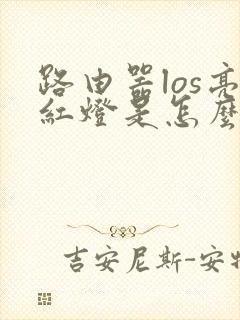 路由器los亮
紅燈是怎麼
吉安尼斯-安特